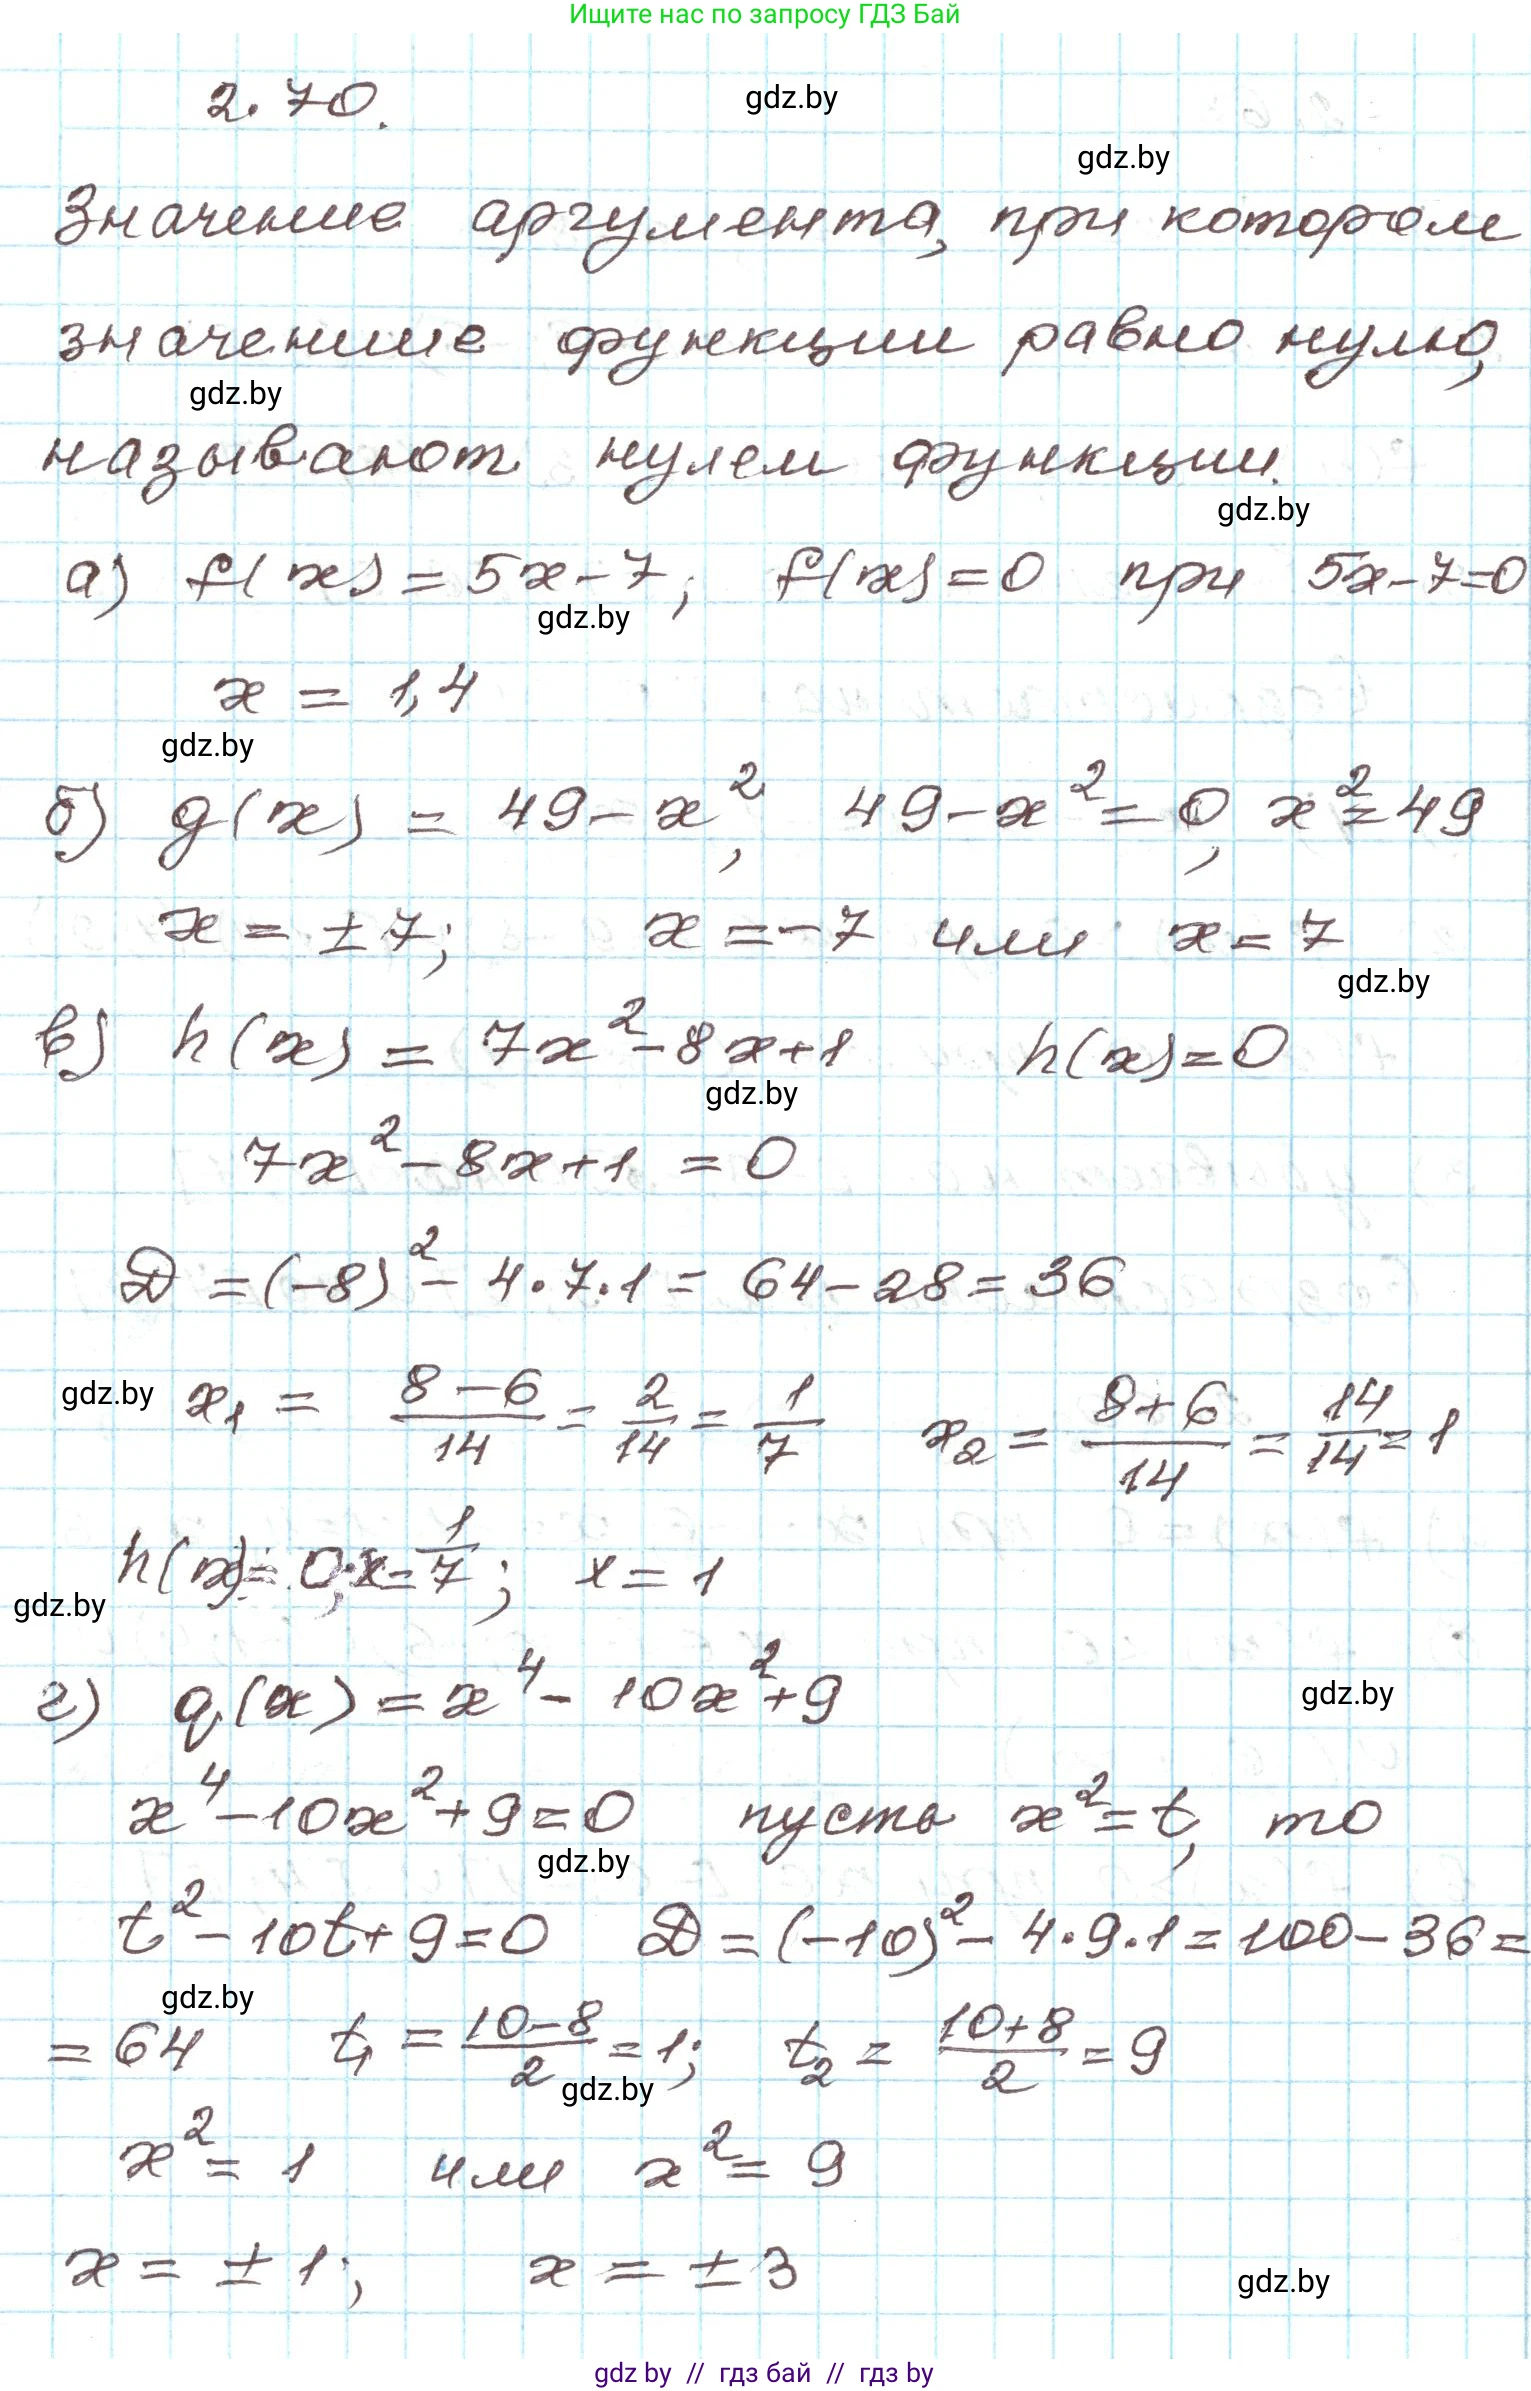 Ищите нас по запросу ГДЗ Бай
2.70.
gdz.by
gdz.by
Значение аргумента, при котором
значение функции равно нулю,
gdz.by
называют нулем функции.
gdz.by
а) f(x) = 5x - 7; f(x) = 0 при 5x - 7 = 0
gdz.by
x = 1,4
gdz.by
б) g(x) = 49 - x², 49 - x² = 0, x² = 49
x = ±7; x = -7 или x = 7
gdz.by
в) h(x) = 7x² - 8x + 1 h(x) = 0
gdz.by
7x² - 8x + 1 = 0
D = (-8)² - 4·7·1 = 64 - 28 = 36
gdz.by x₁ = (8 - 6)/14 = 2/14 = 1/7 x₂ = (8 + 6)/14 = 14/14 = 1
h(x) = 0, x = 1/7; x = 1
gdz.by
г) q(x) = x⁴ - 10x² + 9
gdz.by
x⁴ - 10x² + 9 = 0 пусть x² = t, то
gdz.by
t² - 10t + 9 = 0 D = (-10)² - 4·9·1 = 100 - 36 =
gdz.by
= 64 t₁ = (10 - 8)/2 = 1; t₂ = (10 + 8)/2 = 9
gdz.by
x² = 1 или x² = 9
x = ±1; x = ±3
gdz.by
gdz by // гдз бай // гдз by